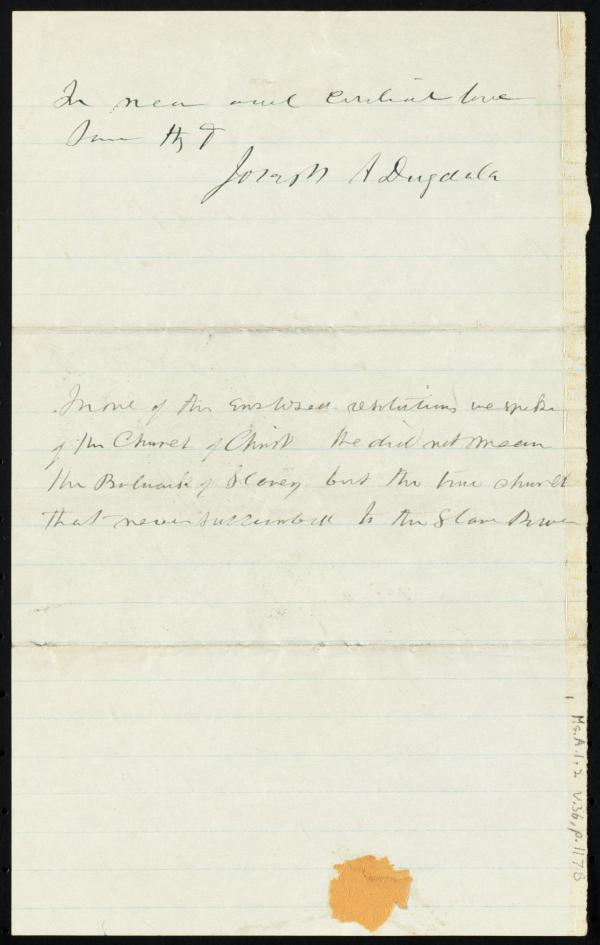 In near and cordial love
Joseph A Dugdale
In one of the enclosed resolutions we spoke
of the Church of Christ We did not mean
the Bulwark of Slavery but the true church
that never succumbed to the Slave Power
Ms.A.1.2 v.36, p.117B